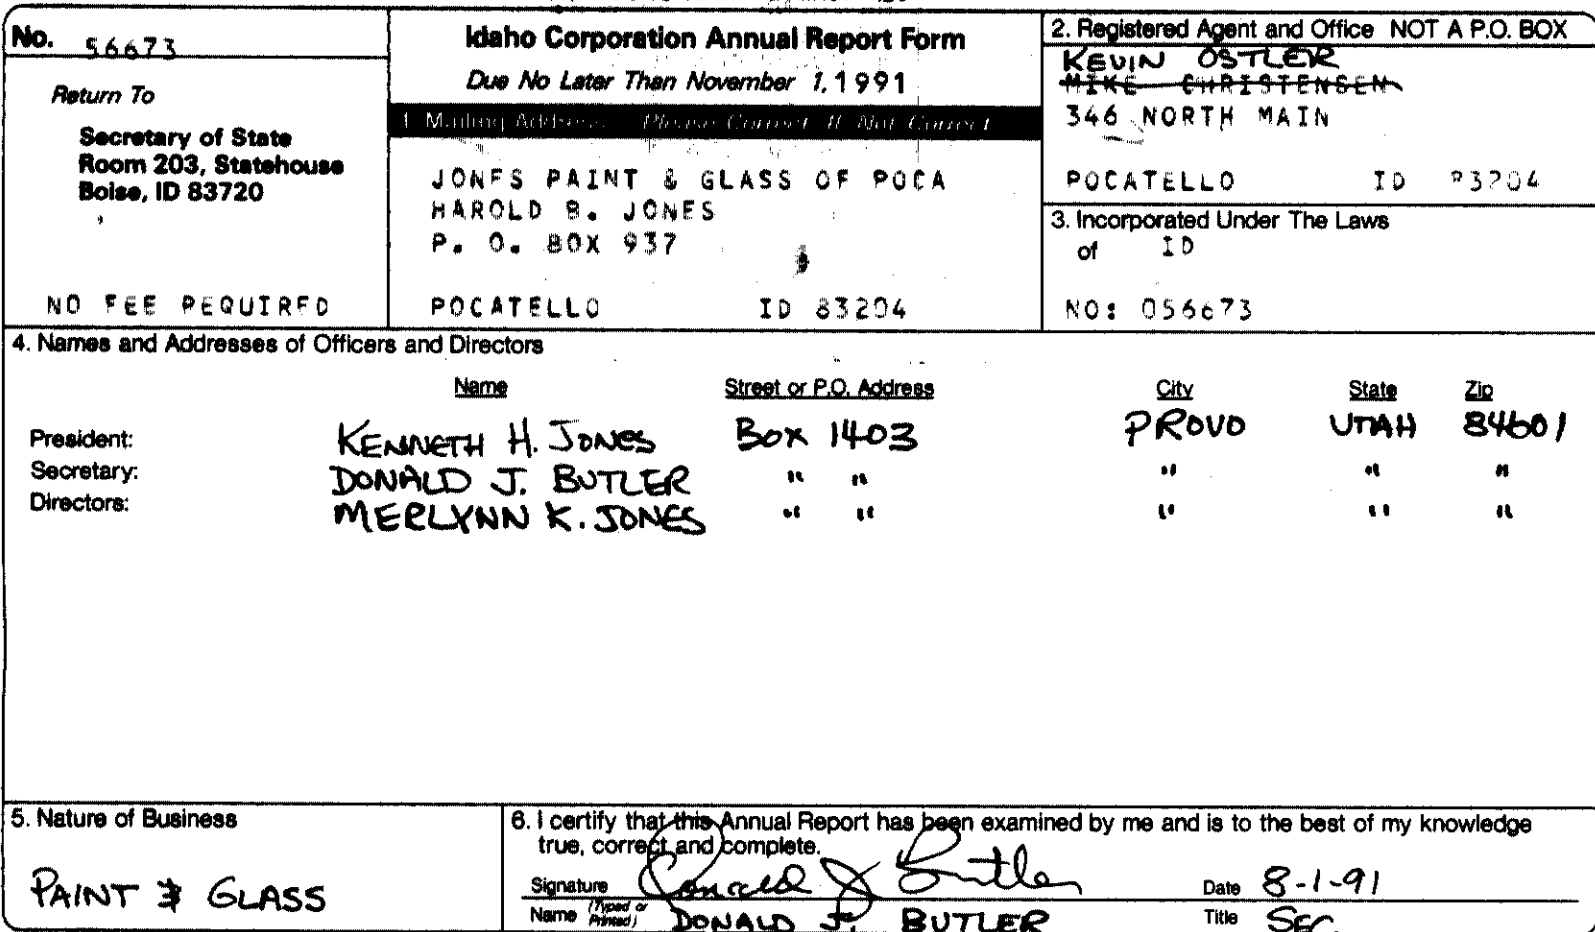 No. 56673
Return To
Secretary of State
Room 203, Statehouse
Boise, ID 83720
NO FEE REQUIRED
Idaho Corporation Annual Report Form
Due No Later Than November 1, 1991
1. Mailing Address: Please Correct If Not Correct
JONES PAINT & GLASS OF POCA
HAROLD B. JONES
P. O. BOX 937
POCATELLO ID 83204
2. Registered Agent and Office NOT A P.O. BOX
KEVIN OSTLER
MIKE CHRISTENSEN
346 NORTH MAIN
POCATELLO ID 83204
3. Incorporated Under The Laws
of ID
NO: 056673
4. Names and Addresses of Officers and Directors
Name Street or P.O. Address City State Zip
President: KENNETH H. JONES BOX 1403 PROVO UTAH 84601
Secretary: DONALD J. BUTLER " " " " "
Directors: MERLYNN K. JONES " " " " "
5. Nature of Business
PAINT & GLASS
6. I certify that this Annual Report has been examined by me and is to the best of my knowledge
true, correct and complete.
Signature Donald J Butler Date 8-1-91
Name (Typed or Printed) DONALD J. BUTLER Title SEC